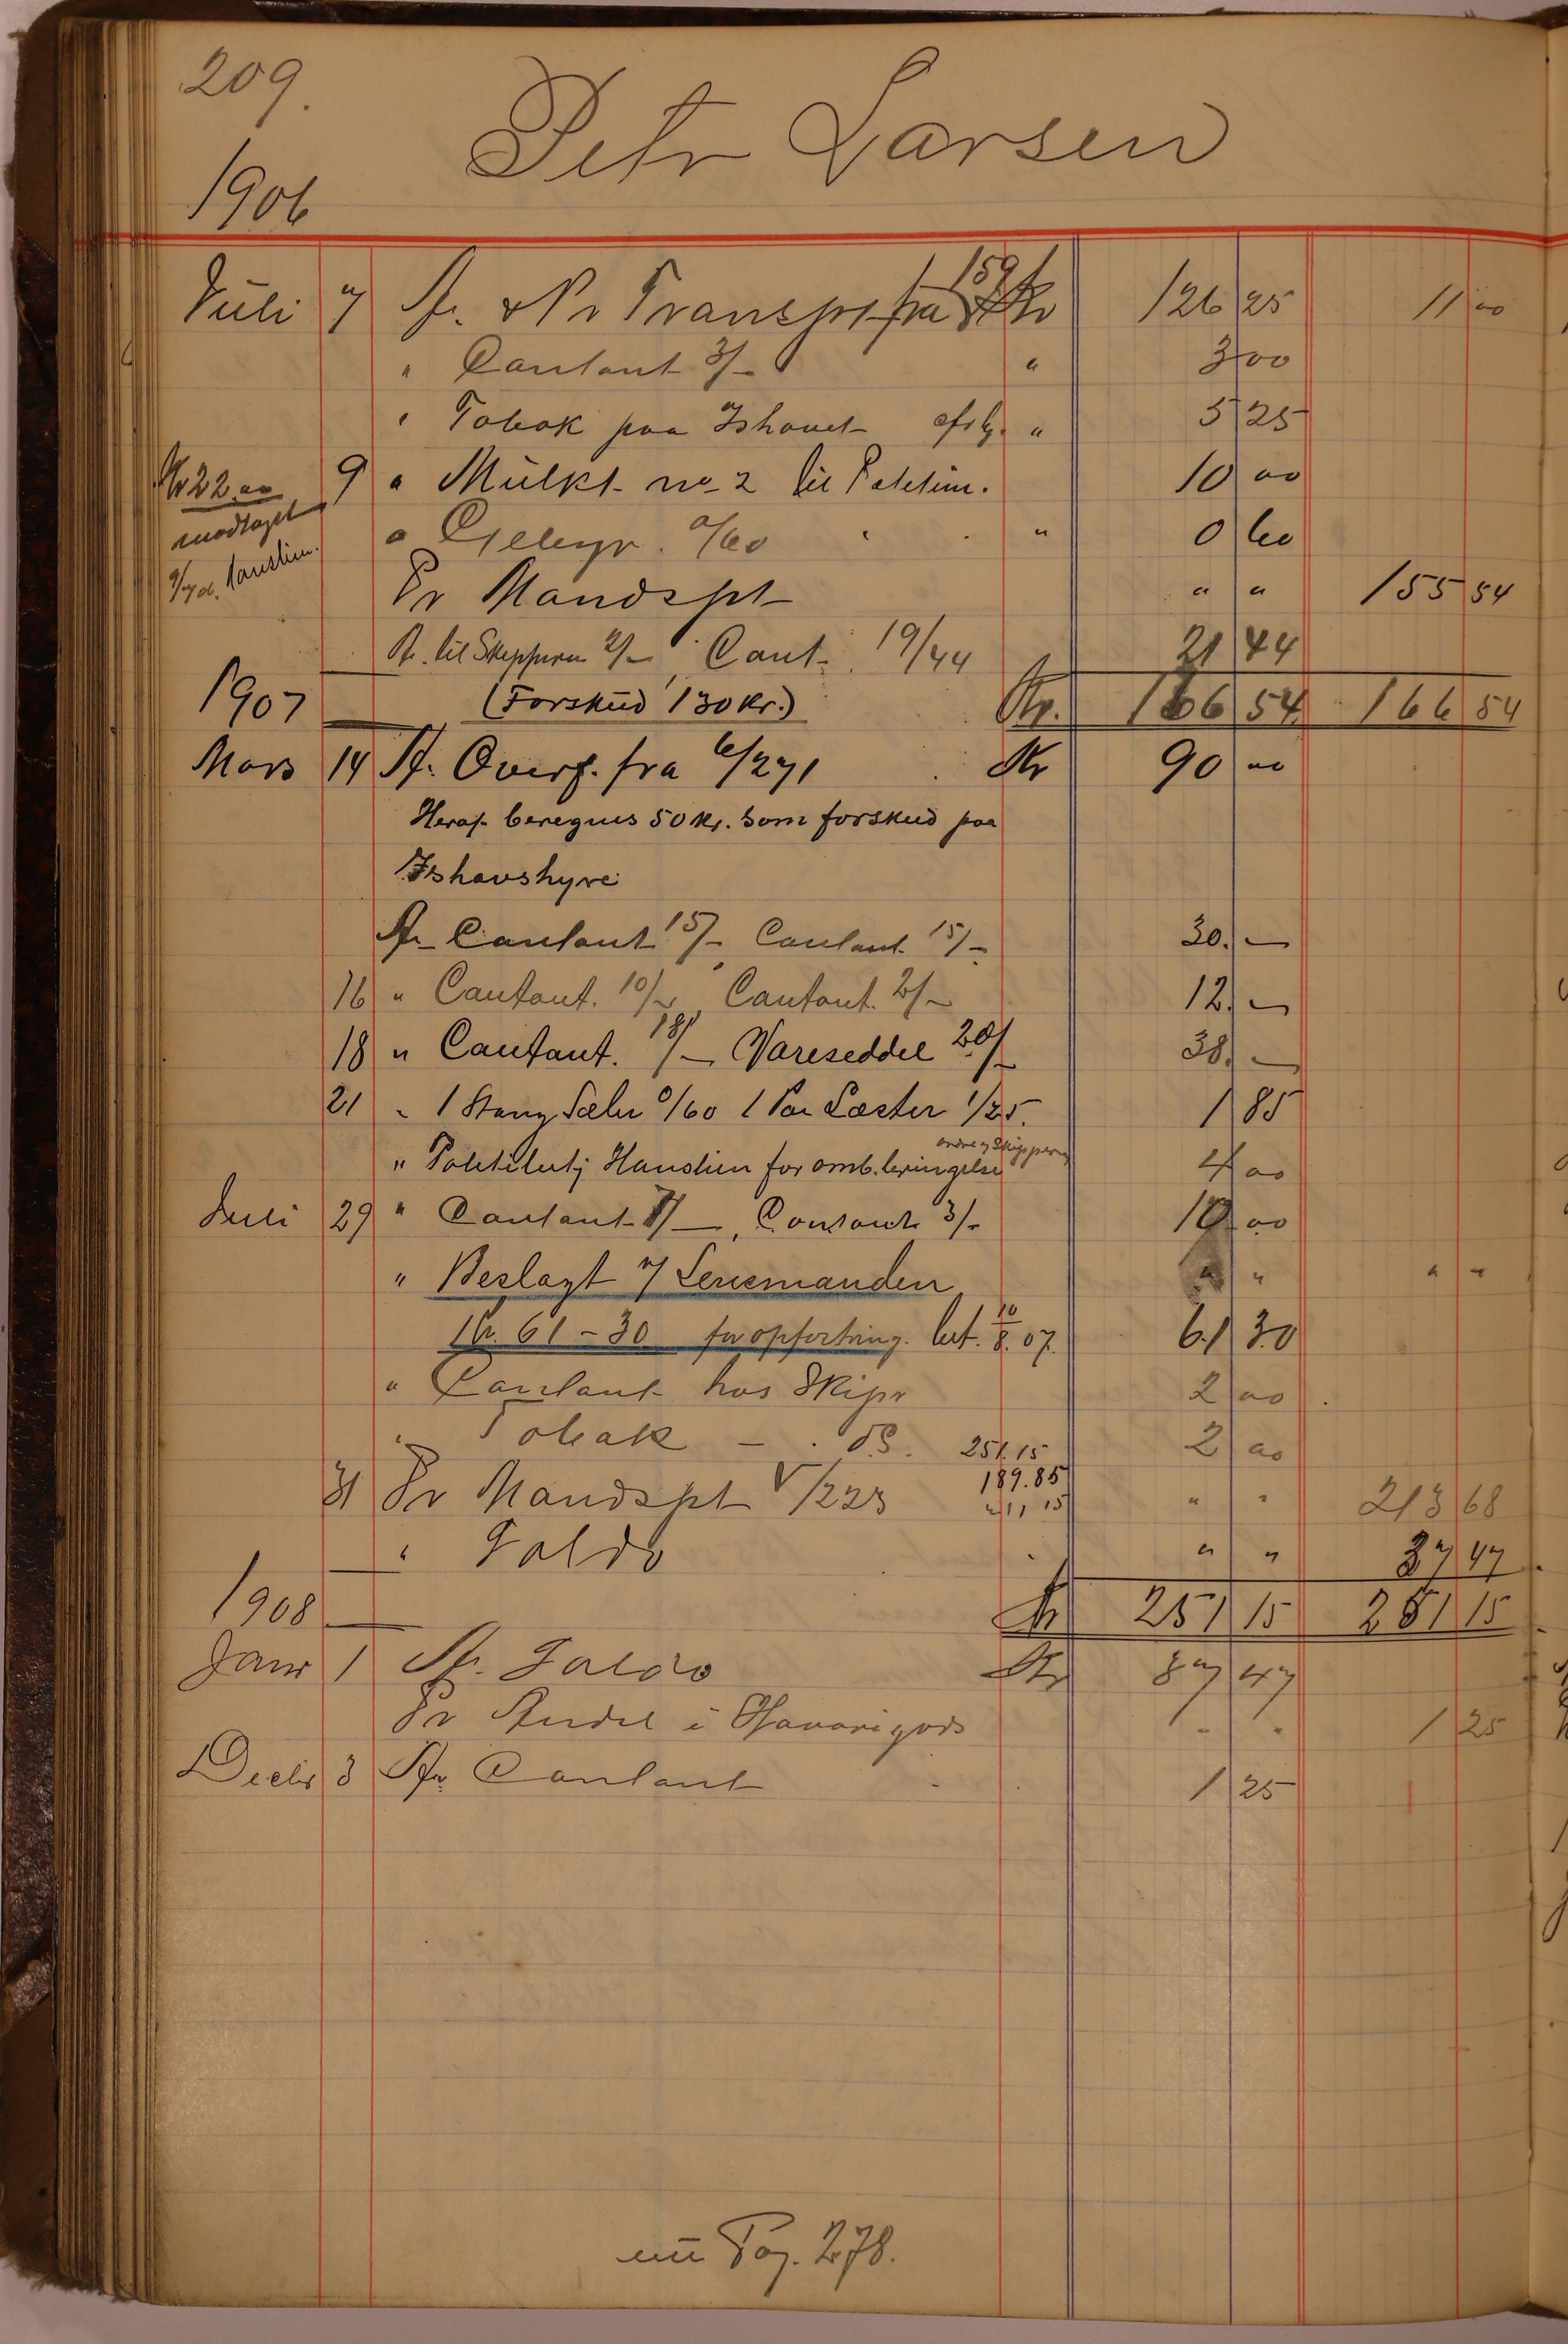 209.
Petr Larsen
1906
Juli 7 An. & Pr Transpt fra 159 Kr 126 25 11 00
" Contant 3/- " 3 00
" Tobak paa Ishavet " 5 25
Kr 22.00 9 " Mülkt no 2 til Politim. 10 00
modtaget
" Gebyr. 0/60 " 0 60
Pr Mandspt " " 155 54
An. til Skipperen 2/- Cont. 19/44 21 44
1907 (Forskud 130 Kr.) Kr. 166 54 166 54
Mars 14 An. Overf. fra 6/271 Kr 90 00
Heraf beregnes 50 Kr. som forskud paa
Ishavshyre
An Contant 15/-, Contant 15/- 30. -
16 " Contant. 10/-, Contant. 2/- 12. -
18 " Contant. 18/- Vareseddel 20/- 38. -
21 " 1 Stang Sæbe 0/60 1 Par Læster 1/25. 1 85
" Politibetj Hanslien for omb. bringelse 4 00
Juli 29 " Contant 7/-, Contant 3/- 10 00
" Beslagt 7 Lensmanden " " " "
Kr. 61-30 for opfostring. bet. 10/8. 07. 61 30
" Contant hos Skipr 2 00
" Tobak - do. 251.15 2 00
189.85
31 Pr Mandspt V/223 " " 213 68
" Saldo " " 37 47
1908 Kr 251 15 251 15
Janr 1 An. Saldo Kr 37 47
Pr Andel i Havarigods " " 1 25
Decbr 3 An Contant 1 25
nü Pag. 278.